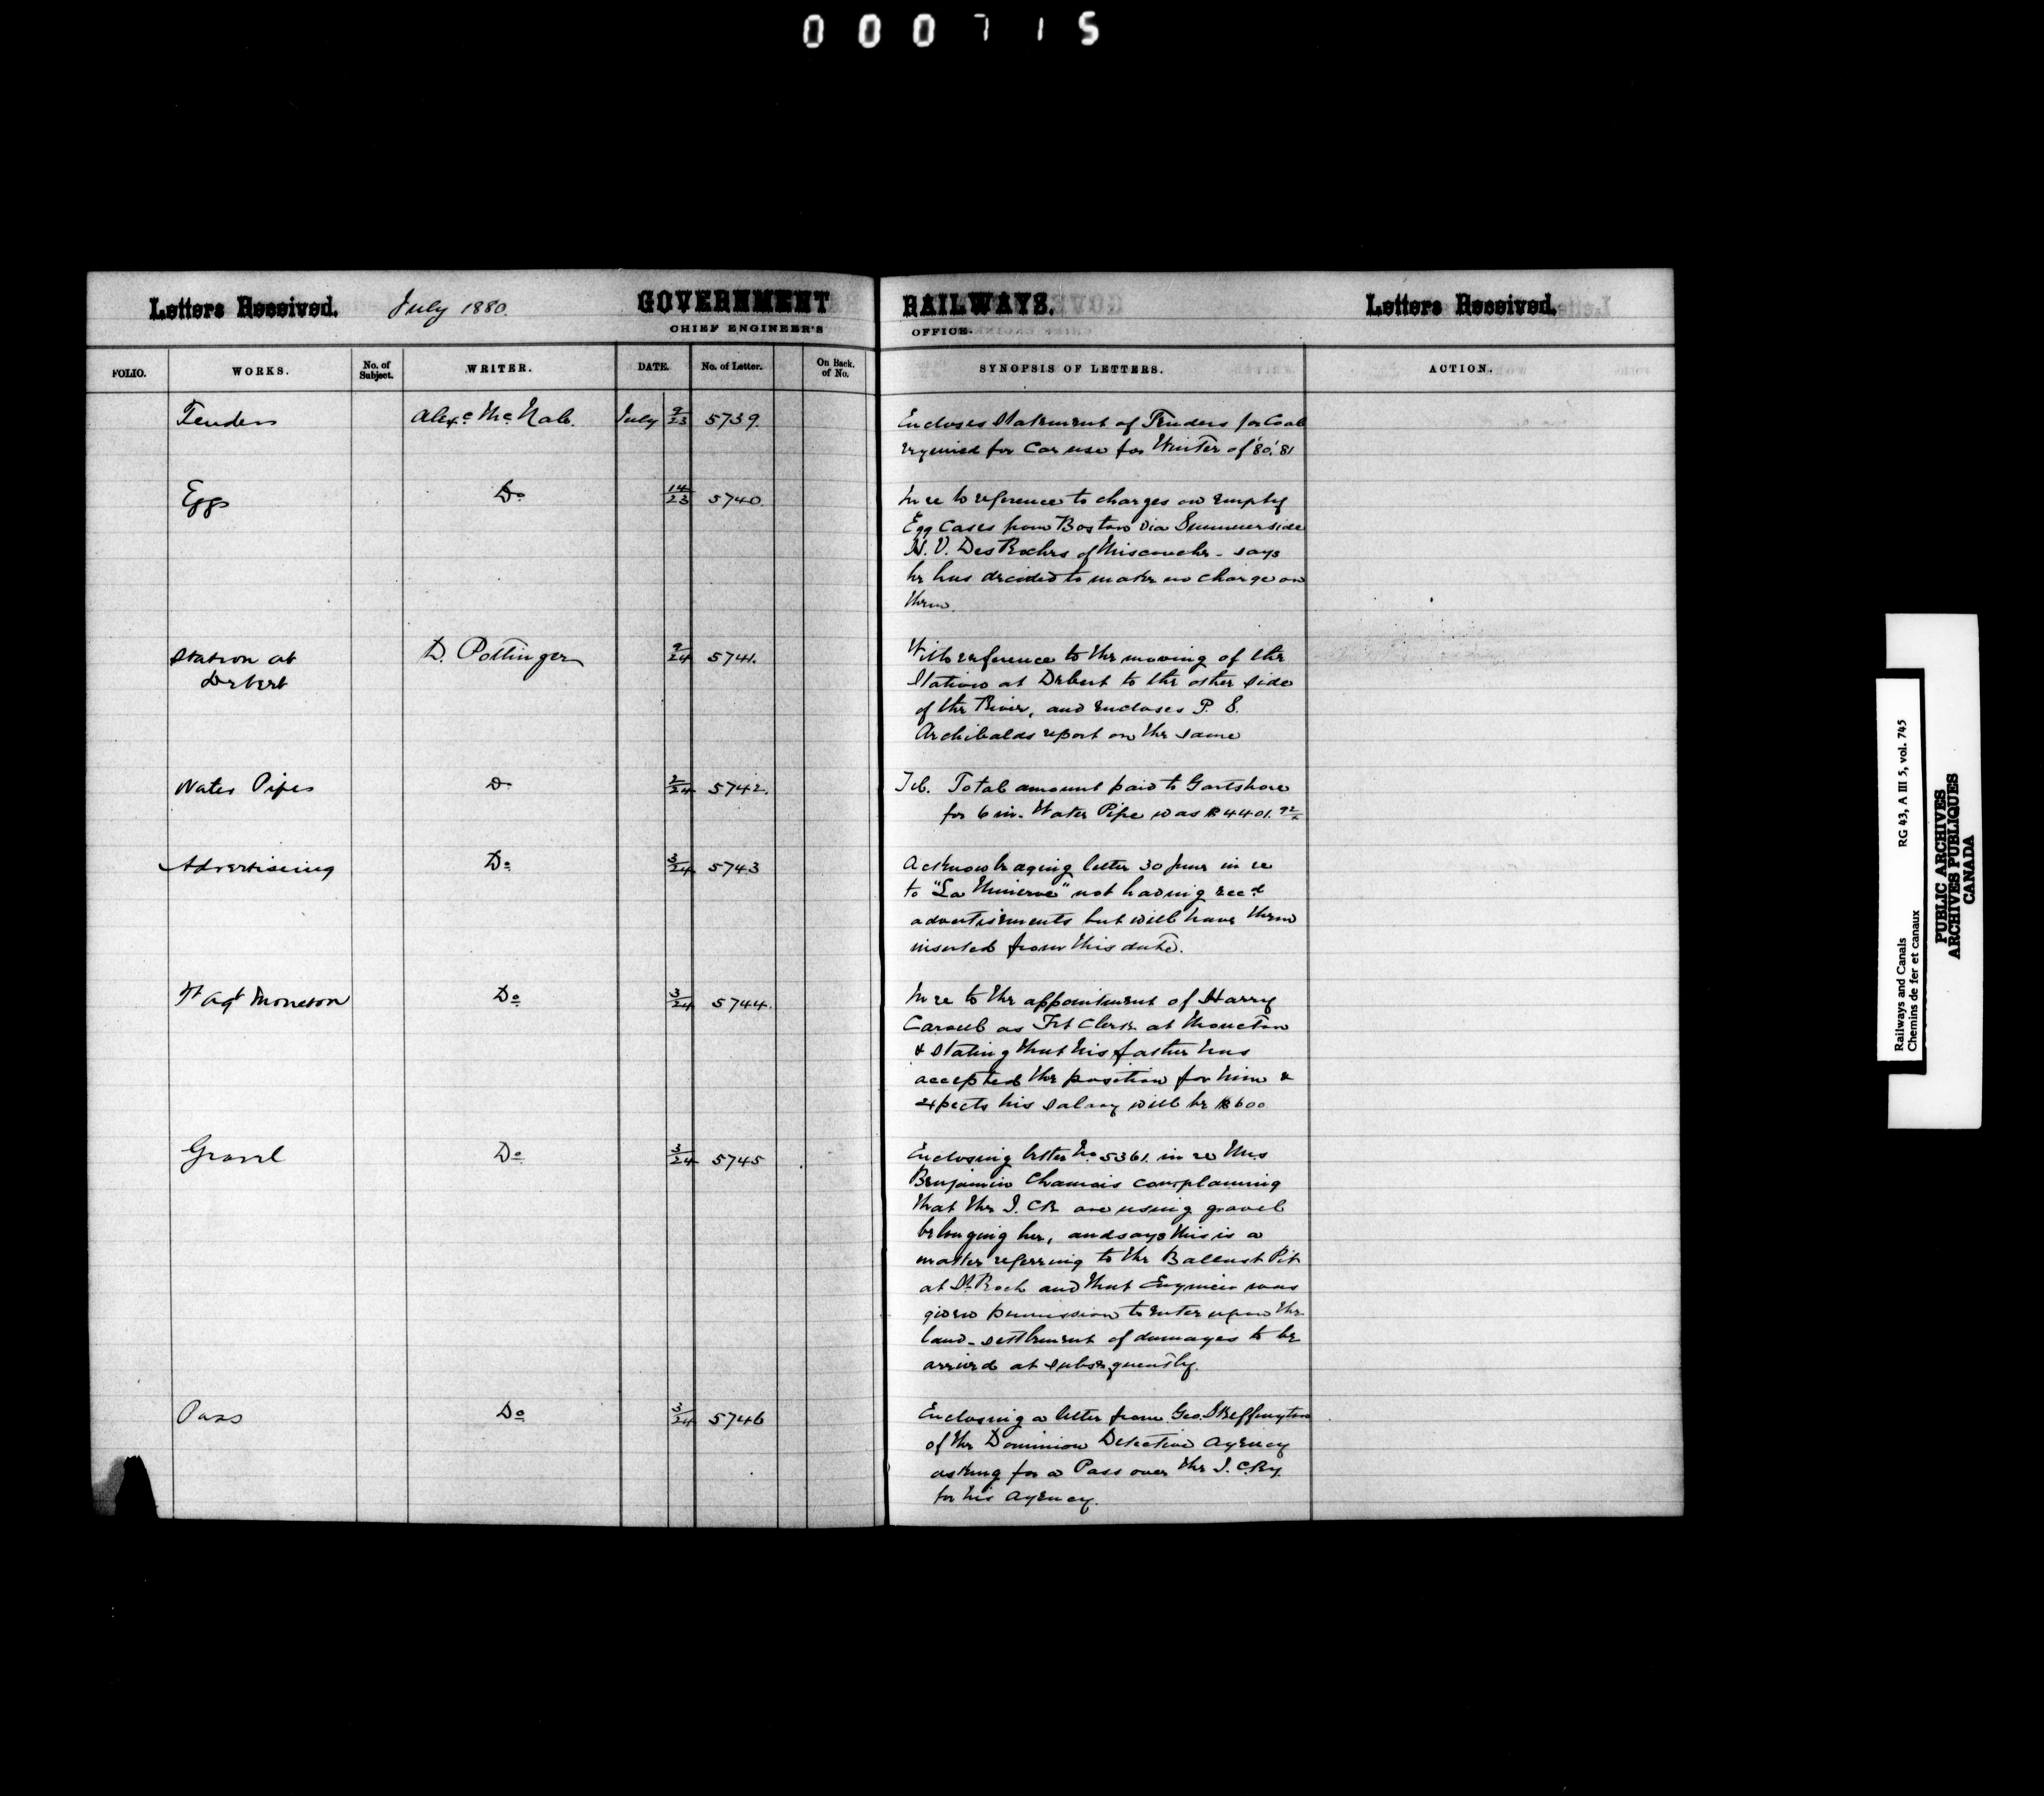 000715
Letters Received. July 1880. GOVERNMENT RAILWAYS. Letters Received.
CHIEF ENGINEER'S OFFICE.
FOLIO. WORKS. No. of Subject. WRITER. DATE. No. of Letter. On Back of No. SYNOPSIS OF LETTERS. ACTION.
Tenders Alexr McNab. July 9/23 5739. Encloses Statement of Tenders for Coal
required for Car use for Winter of '80.'81
Eggs Do 14/23 5740. In re to reference to charges on empty
Egg Cases from Boston via Summerside
H. V. DesRoches of Miscouche - says
he has decided to make no charge on
them.
Station at Debert D. Pottinger 9/24 5741. With reference to the moving of the
Station at Debert to the other side
of the River, and encloses P. S.
Archibalds report on the same
Water Pipes Do 2/24 5742. Tel. Total amount paid to Gartshore
for 6 in. Water Pipe was $4401.92
Advertising Do 3/24 5743 Acknowledging letter 30 June in re
to "La Minerve" not having recd
advertisements but will have them
inserted from this date.
Ft Agt Moncton Do 3/24 5744. In re to the appointment of Harry
as Frt Clerk at Moncton
& stating that his father has
accepted the position for him &
expects his salary will be $600
Gravel Do 3/24 5745 Enclosing letter No 5361. in re Mrs
Benjamin complaining
that the I. C R are using gravel
belonging her, and says this is a
matter referring to the Ballast Pit
at St. Roch and that Engineer was
given permission to enter upon the
land - settlement of damages to be
arrived at subsequently.
Pass Do 3/24 5746 Enclosing a letter from Geo. Skeffington
of the Dominion Detective Agency
asking for a Pass over the I. C. Ry.
for his Agency.
Railways and Canals RG 43, A III 5, vol. 745
Chemins de fer et canaux
PUBLIC ARCHIVES
ARCHIVES PUBLIQUES
CANADA